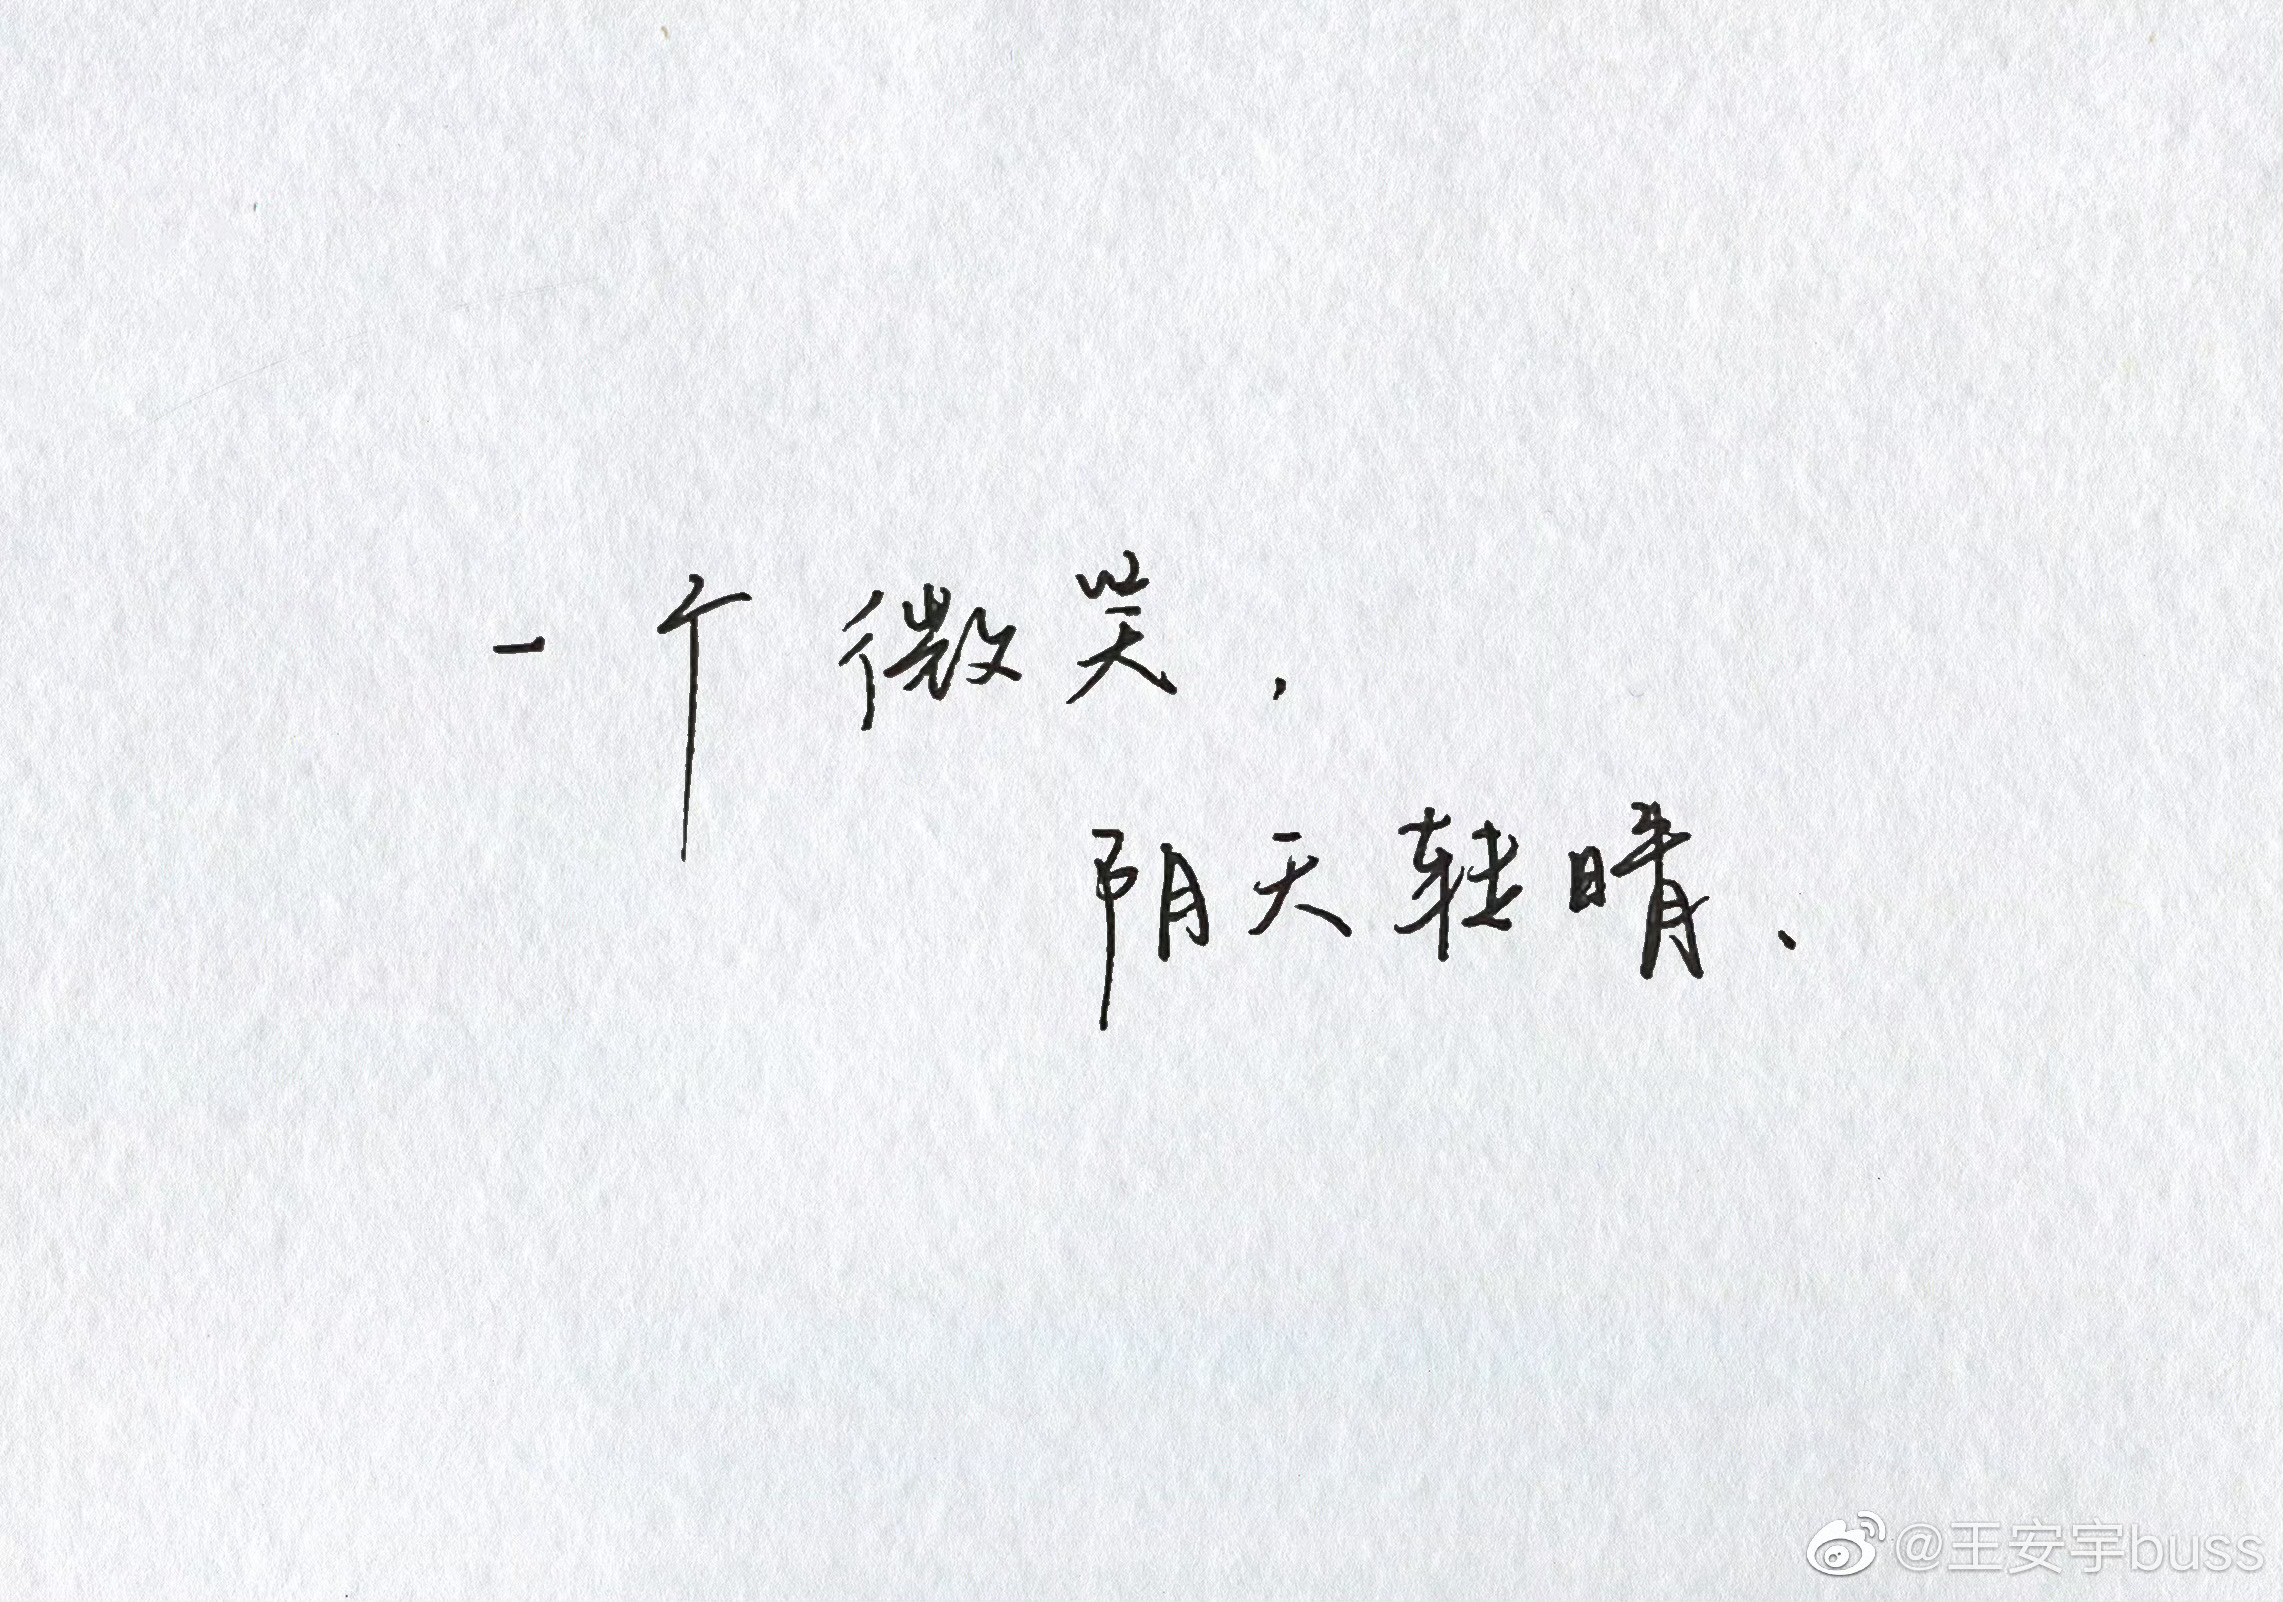 一个微笑，
阴天转晴、
@王安宇buss